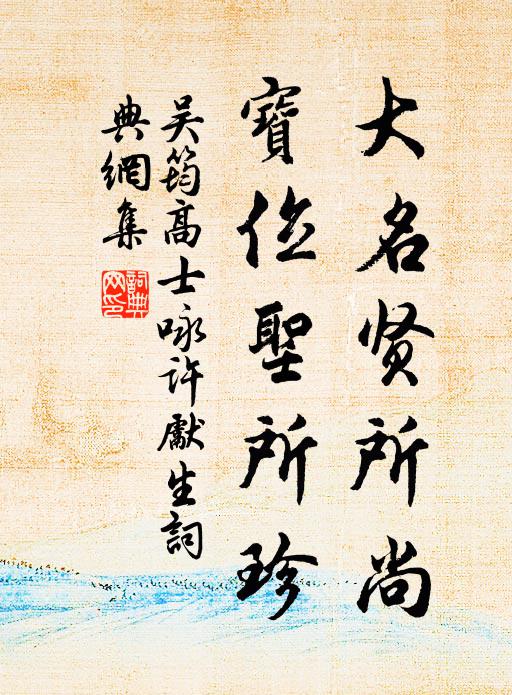 大名贤所尚
寶位聖所珍
吴筠高士咏許獻生詞
典網集
詞典
网印